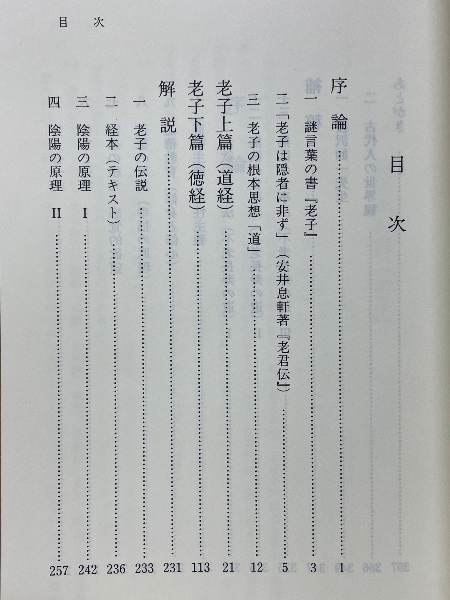 目次
目次
序論……1
一 謎言葉の書『老子』……3
二「老子は隠者に非ず」(安井息軒著『老君伝』)……5
三 老子の根本思想「道」……12
老子上篇(道経)……21
老子下篇(徳経)……113
解説……231
一 老子の伝説……233
二 経本(テキスト)……236
三 陰陽の原理 I……242
四 陰陽の原理 II……257